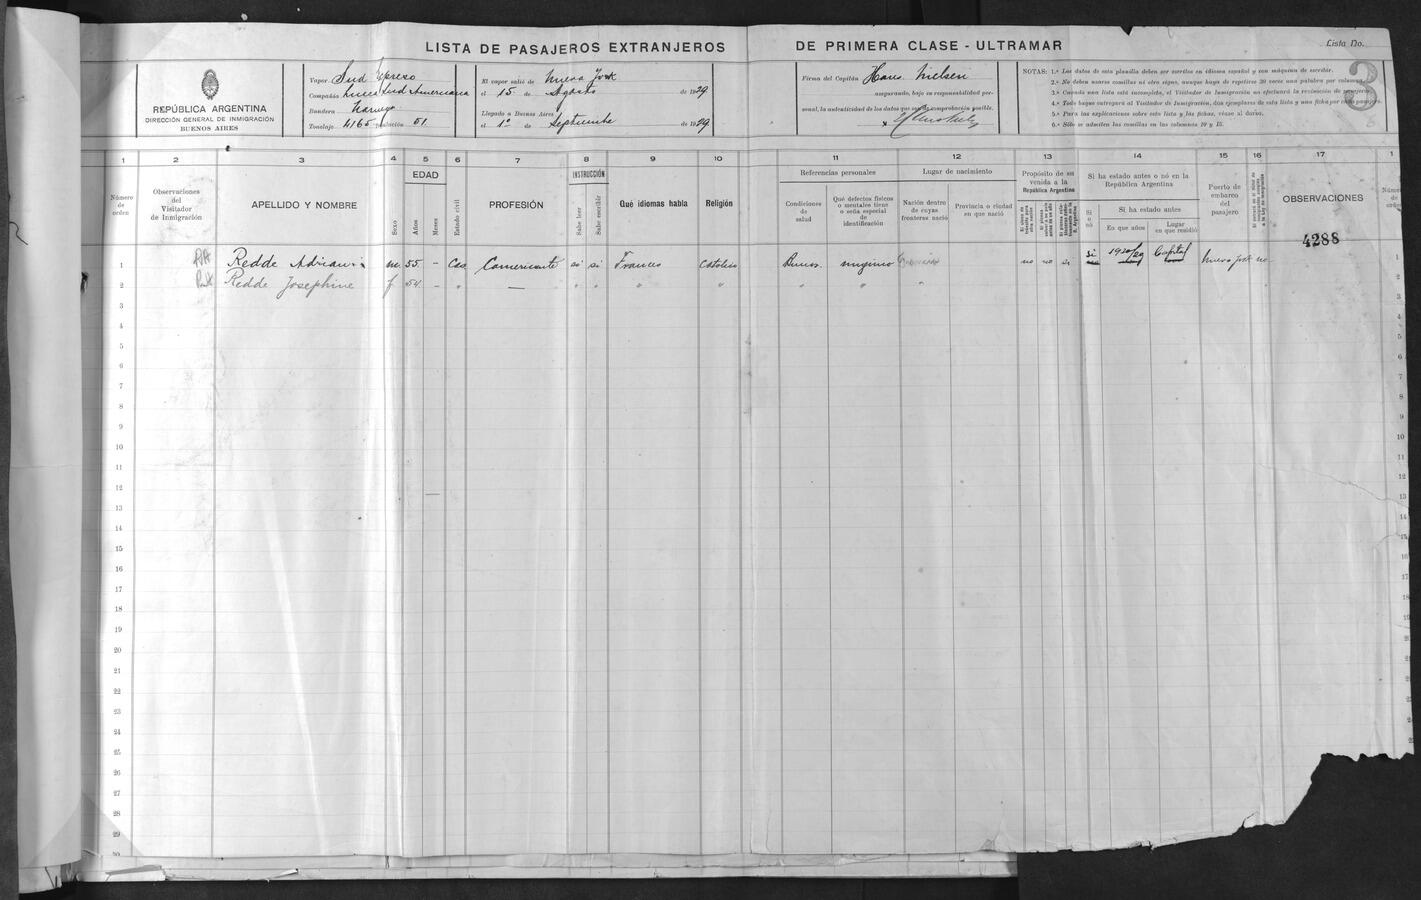 LISTA DE PASAJEROS EXTRANJEROS DE PRIMERA CLASE - ULTRAMAR
Lista No.
3
REPÚBLICA ARGENTINA
DIRECCIÓN GENERAL DE INMIGRACIÓN
BUENOS AIRES
Vapor Sud Expreso
Compañía Linea Sud Americana
Bandera Noruega
Tonelaje 4165 51.
El vapor salió de Nueva York
el 15 de Agosto de 1929
Llegado a Buenos Aires
el 1º de Septiembre de 1929
Firma del Capitán Hans Nielsen
asegurando, bajo su responsabilidad per-
sonal, la autenticidad de los datos que su comprobación posible.
NOTAS: 1.ª Los datos de esta planilla deben ser escritos en idioma español y con máquina de escribir.
2.ª No deben usarse comillas ni otro signo, aunque haya de repetirse 20 veces una palabra por columna.
3.ª Cuando una lista esté incompleta, el Visitador de Inmigración no efectuará la revisión de pasajeros.
4.ª Todo buque entregará al Visitador de Inmigración, dos ejemplares de esta lista y una ficha por cada pasajero.
5.ª Para las explicaciones sobre esta lista y las fichas, véase al dorso.
6.ª Sólo se admiten las comillas en las columnas 10 y 15.
1 2 3 4 5 6 7 8 9 10 11 12 13 14 15 16 17 1
Número de orden
Observaciones del Visitador de Inmigración
APELLIDO Y NOMBRE
Sexo
EDAD
Años
Meses
Estado civil
PROFESIÓN
INSTRUCCIÓN
Sabe leer
Sabe escribir
Qué idiomas habla
Religión
Referencias personales
Condiciones de salud
Qué defectos físicos o mentales tiene o seña especial de identificación
Lugar de nacimiento
Nación dentro de cuyas fronteras nació
Provincia o ciudad en que nació
Propósito de su venida a la República Argentina
Si ha estado antes o nó en la República Argentina
Si o nó
Si ha estado antes
En que años
Lugar en que residió
Puerto de embarco del pasajero
OBSERVACIONES
4288
1 Redde Adrian m 55 - Cas Comerciante si si Frances Catolico Buena ninguno no no si si 1920/29 Capital Nueva York no 1
2 Redde Josephine f 54 - " — " " " " " " " 2
3 3
4 4
5 5
6 6
7 7
8 8
9 9
10 10
11 11
12 12
13 13
14 14
15 15
16 16
17 17
18 18
19 19
20 20
21 21
22 22
23 23
24 24
25
26
27
28
29